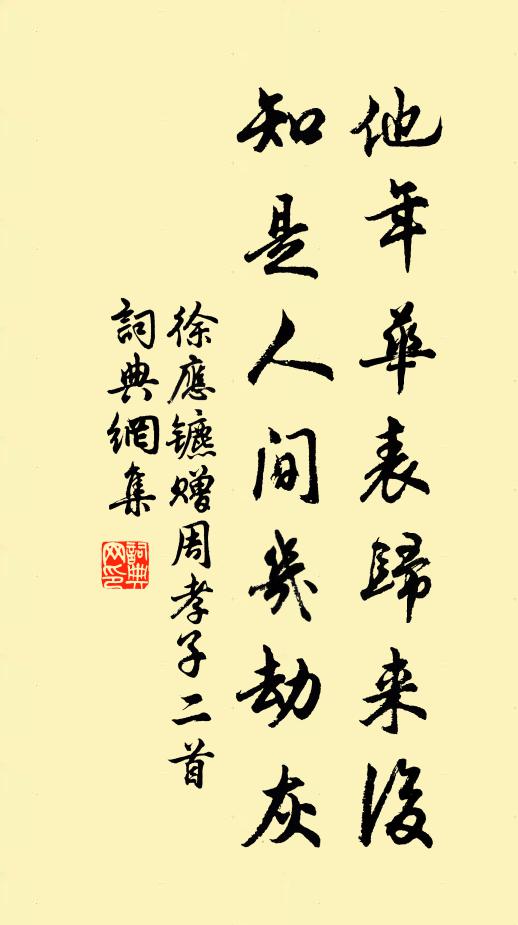 他年華表歸来後
知是人間幾劫灰
徐應镳赠周孝子二首
詞典網集
詞典網印